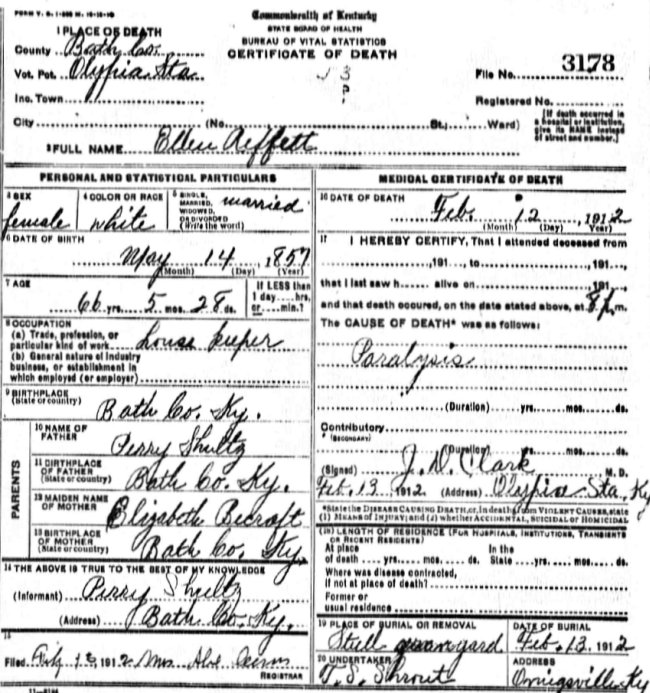 FORM V. S. 1-
Commonwealth of Kentucky
STATE BOARD OF HEALTH
BUREAU OF VITAL STATISTICS
CERTIFICATE OF DEATH
1 PLACE OF DEATH
County Bath Co.
Vot. Pct. Olypia Sta
Inc. Town
File No. 3178
Registered No.
City (No. St.; Ward)
[If death occurred in a hospital or institution, give its NAME instead of street and number.]
2 FULL NAME Ellen Reffett
PERSONAL AND STATISTICAL PARTICULARS
3 SEX female
4 COLOR OR RACE white
5 SINGLE, MARRIED, WIDOWED, OR DIVORCED (Write the word) married
6 DATE OF BIRTH
May 14 1857
(Month) (Day) (Year)
7 AGE
66 yrs. 5 mos. 28 ds.
If LESS than 1 day....hrs. or....min.?
8 OCCUPATION
(a) Trade, profession, or particular kind of work house keeper
(b) General nature of industry business, or establishment in which employed (or employer)
9 BIRTHPLACE (State or country)
Bath Co. Ky.
PARENTS
10 NAME OF FATHER Perry Shultz
11 BIRTHPLACE OF FATHER (State or country) Bath Co. Ky.
12 MAIDEN NAME OF MOTHER Elizabeth Becraft
13 BIRTHPLACE OF MOTHER (State or country) Bath Co. Ky.
14 THE ABOVE IS TRUE TO THE BEST OF MY KNOWLEDGE
(Informant) Perry Shultz
(Address) Bath Co. Ky.
15
Filed 1912 Mrs
REGISTRAR
MEDICAL CERTIFICATE OF DEATH
16 DATE OF DEATH
Feb. 12 1912
(Month) (Day) (Year)
17 I HEREBY CERTIFY, That I attended deceased from
,191 , to ,191 ,
that I last saw h alive on ,191 ,
and that death occured, on the date stated above, at 8 p. m.
The CAUSE OF DEATH* was as follows:
Paralysis
(Duration) yrs. mos. ds.
Contributory
(SECONDARY)
(Duration) yrs. mos. ds.
(Signed) J. D. Clark M. D.
Feb. 13 1912 (Address) Olypia Sta. Ky
*State the DISEASE CAUSING DEATH, or, in deaths from VIOLENT CAUSES, state (1) MEANS OF INJURY; and (2) whether ACCIDENTAL, SUICIDAL or HOMICIDAL
18 LENGTH OF RESIDENCE (FOR HOSPITALS, INSTITUTIONS, TRANSIENTS OR RECENT RESIDENTS)
At place of death yrs. mos. ds. In the State yrs. mos. ds.
Where was disease contracted, if not at place of death?
Former or usual residence
19 PLACE OF BURIAL OR REMOVAL
Stull
DATE OF BURIAL
Feb. 13 1912
20 UNDERTAKER
T. S. Shrout
ADDRESS
Owingsville Ky